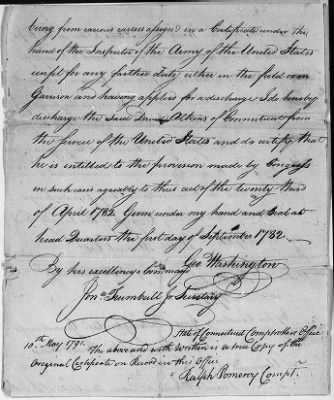 being from various causes assigned in a Certificate under the
hand of the Inspector of the Army of the United States
unfit for any further duty either in the field or in
Garrison and having applied for a discharge I do hereby
discharge the said Atkins of Connecticut from
the service of the United States and do certify that
he is entitled to the provision made by Congress
in such cases agreeably to their act of the twenty third
of April 1782. Given under my hand and seal at
head Quarters the first day of September 1782.
Geo Washington
By his excellencys Command
Jona Trumbull Jr Secretary
State of Connecticut Comptrollers Office
10th May 1791. The above and with written is a true Copy of the
Original Certificate on Record in this Office
Ralph Pomeroy Compt.